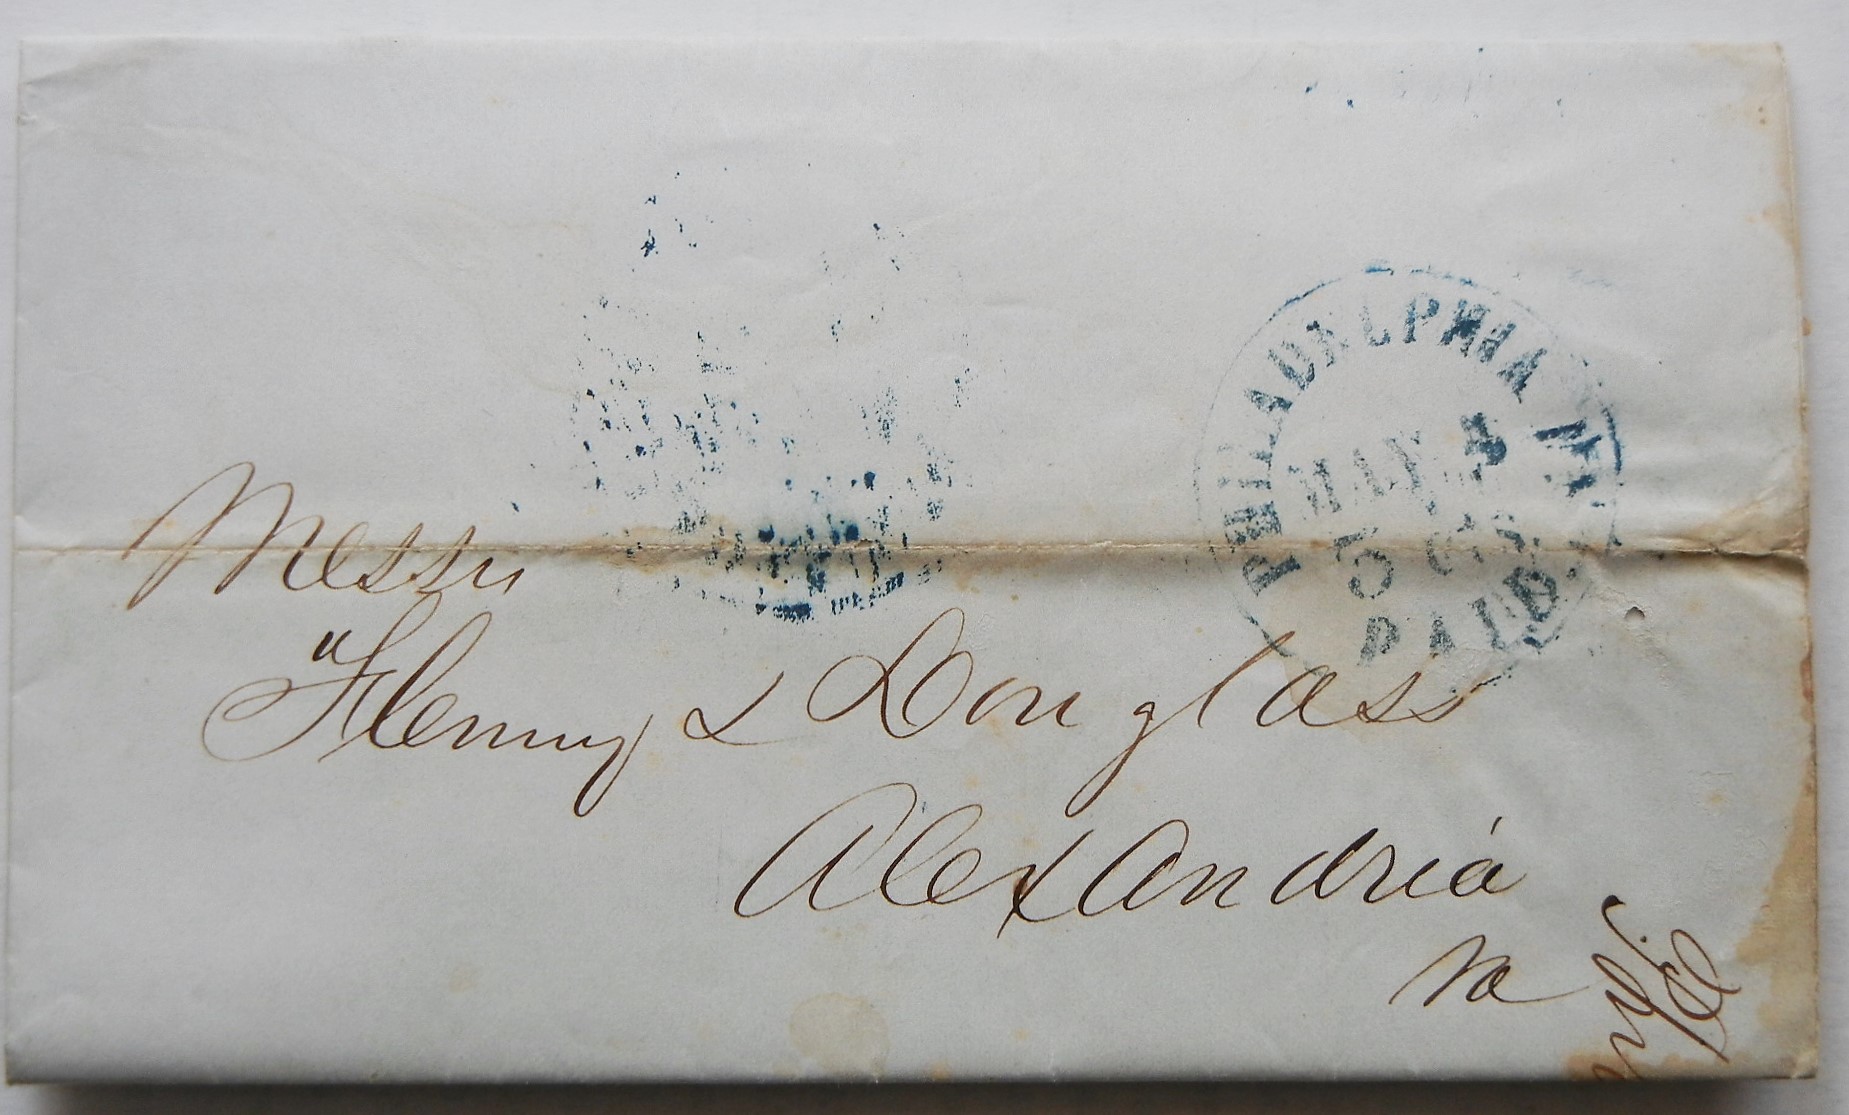 PHILADELPHIA
MAY 4
3 cts
PAID
Messrs
Fleming & Douglass
Alexandria
Va